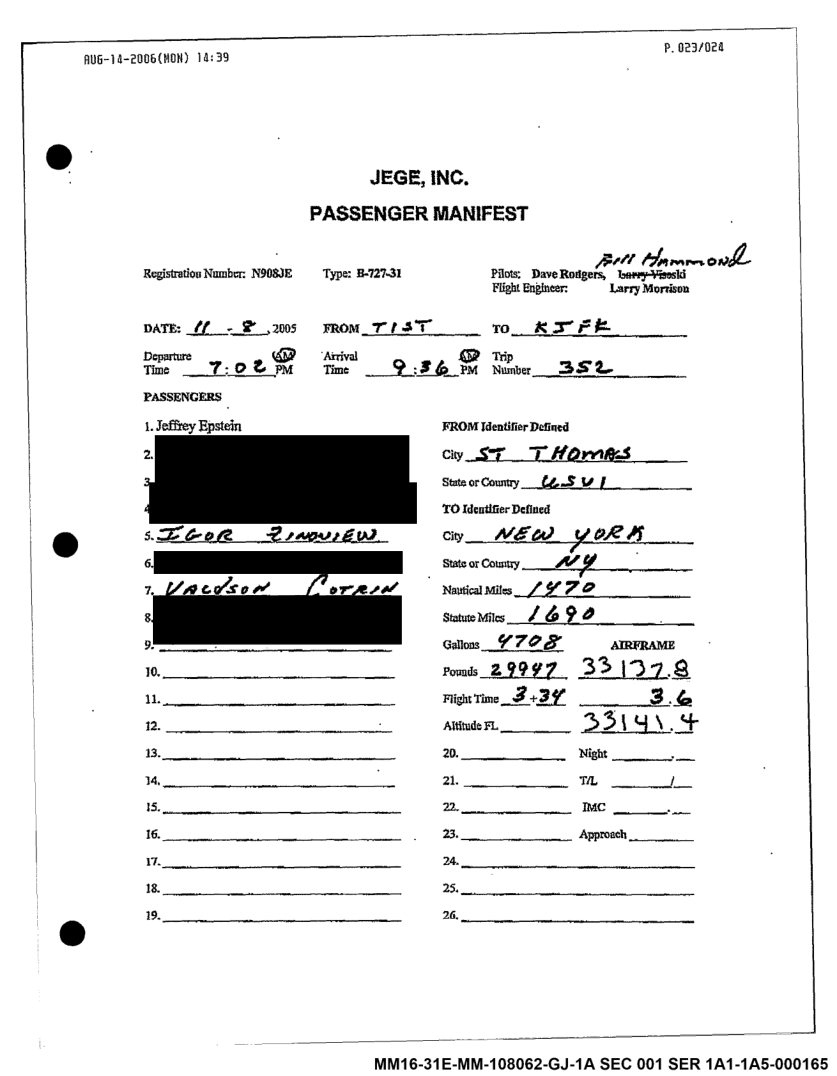 AUG-14-2006(MON) 14:39 P. 023/024
JEGE, INC.
PASSENGER MANIFEST
Bill Hammond
Registration Number: N908JE Type: B-727-31 Pilots: Dave Rodgers, Larry Visoski
Flight Engineer: Larry Morrison
DATE: 11 - 8 , 2005 FROM TIST TO KJFK
Departure Time 7:02 AM PM Arrival Time 9:36 AM PM Trip Number 352
PASSENGERS
1. Jeffrey Epstein FROM Identifier Defined
2. City ST THOMAS
3. State or Country USVI
4 TO Identifier Defined
5. IGOR ZINOVIEW City NEW YORK
6. State or Country NY
7. VALDSON COTRIN Nautical Miles 1470
8. Statute Miles 1690
9. Gallons 4708 AIRFRAME
10. Pounds 29947 33137.8
11. Flight Time 3+34 3.6
12. Altitude FL 33141.4
13. 20. Night .
14. 21. T/L /
15. 22. IMC .
16. 23. Approach
17. 24.
18. 25.
19. 26.
MM16-31E-MM-108062-GJ-1A SEC 001 SER 1A1-1A5-000165